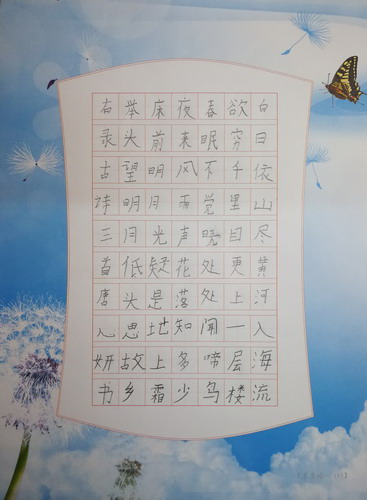 白日依山尽黄河入海流
欲穷千里目更上一层楼
春眠不觉晓处处闻啼鸟
夜来风雨声花落知多少
床前明月光疑是地上霜
举头望明月低头思故乡
右录古诗三首唐心妍书